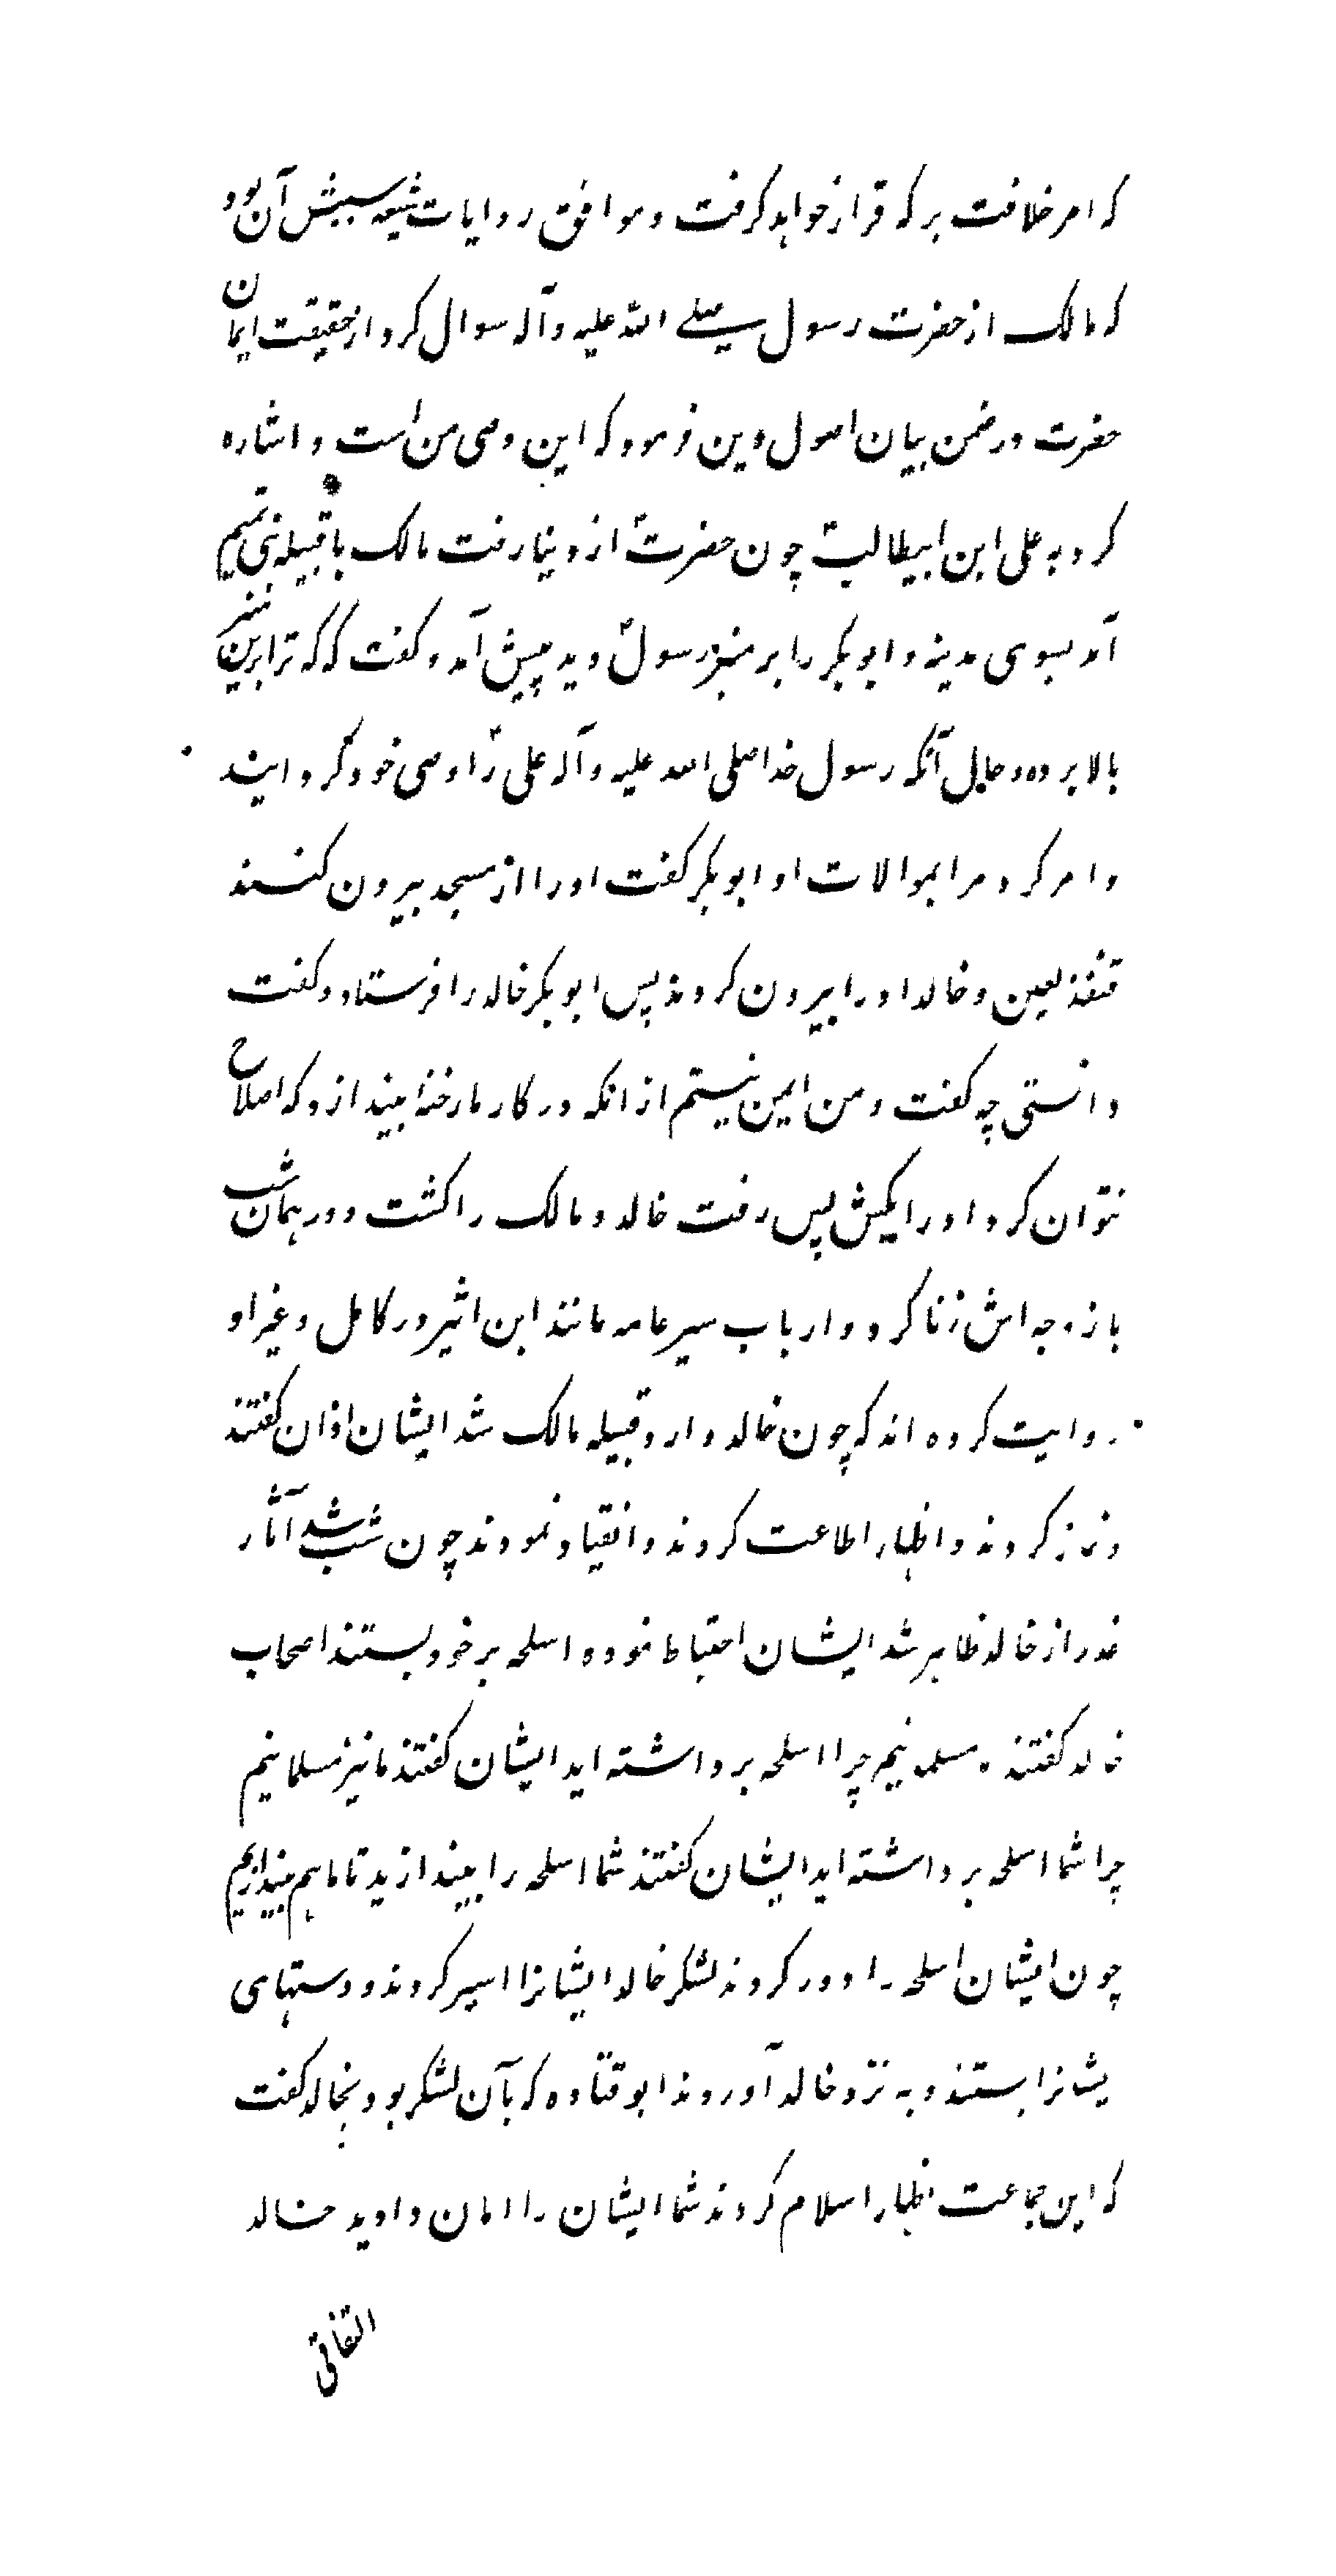 که امر خلافت بر که قرار خواهد گرفت و موافق روایات شیعه سببش آن بود
که مالک از حضرت رسول صلے الله علیه و آله سوال کرد از حقیقت ایمان
حضرت در ضمن بیان اصول دین فرمود که این وصی من است و اشاره
کرد به علی ابن ابیطالبؑ چون حضرتؐ از دنیا رفت مالک با قبیله بنی تمیم
آمد بسوی مدینه و ابوبکر را بر منبر رسولؐ دید پیش آمد و گفت که که ترا برین منبر
بالا برده و حال آنکه رسول خدا صلی الله علیه و آله علیؑ را وصی خود گردانید
و امر کرد مرا بموالات او ابوبکر گفت او را از مسجد بیرون کنند
قنفذ لعین و خالد او را بیرون کردند پس ابوبکر خالد را فرستاد و گفت
دانستی چه گفت و من ایمن نیستم از انکه در کار ما رخنه‌ا بیندازد که اصلاح
نتوان کرد او را بکش پس رفت خالد و مالک را کشت و در همان شب
با زوجه اش زنا کرد و ارباب سیر عامه مانند ابن اثیر در کامل و غیر او
روایت کرده اند که چون خالد وارد قبیله مالک شد ایشان اذان گفتند
و نماز کردند و اظهار اطاعت کردند و انقیاد نمودند چون شب شد آثار
غدر از خالد ظاهر شد ایشان احتیاط نموده اسلحه بر خود بستند اصحاب
خالد گفتند ما مسلمانیم چرا اسلحه برداشته اید ایشان گفتند ما نیز مسلمانیم
چرا شما اسلحه برداشته اید ایشان گفتند شما اسلحه را بیندازید تا ما هم بیندازیم
چون ایشان اسلحه را دور کردند لشکر خالد ایشانرا اسیر کردند و دستهای
یشانرا بستند و به نزد خالد آوردند ابوقتاده که بآن لشکر بود بخالد گفت
که این جماعت اظهار اسلام کردند شما ایشان را امان دادید خالد
التفاتی